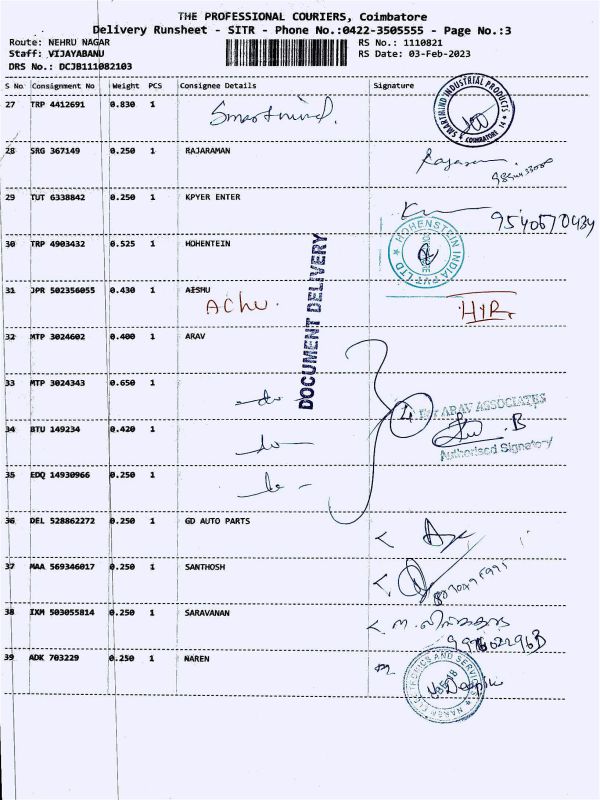 THE PROFESSIONAL COURIERS, Coimbatore
Delivery Runsheet - SITR - Phone No.:0422-3505555 - Page No.:3
Route: NEHRU NAGAR
Staff: VIJAYABANU
DRS No.: DCJB111082103
RS No.: 1110821
RS Date: 03-Feb-2023
S No Consignment No Weight PCS Consignee Details Signature
27 TRP 4412691 0.830 1 Smartmind.
SMARTMIND INDUSTRIAL PRODUCTS
COIMBATORE
28 SRG 367149 0.250 1 RAJARAMAN
29 TUT 6338842 0.250 1 KPYER ENTER
9540570434
30 TRP 4903432 0.525 1 HOHENTEIN
HOHENSTEIN INDIA PVT LTD
DOCUMENT DELIVERY
31 JPR 502356055 0.430 1 AISHU
Achu.
32 MTP 3024602 0.400 1 ARAV
33 MTP 3024343 0.650 1 -do-
For ARAV ASSOCIATES
34 BTU 149234 0.420 1 -do-
4
B
Authorised Signatory
35 EDQ 14930966 0.250 1
36 DEL 528862272 0.250 1 GD AUTO PARTS
37 MAA 569346017 0.250 1 SANTHOSH
38 IXM 503055814 0.250 1 SARAVANAN
39 ADK 703229 0.250 1 NAREN
NAREN ELECTRONICS AND SERVICES